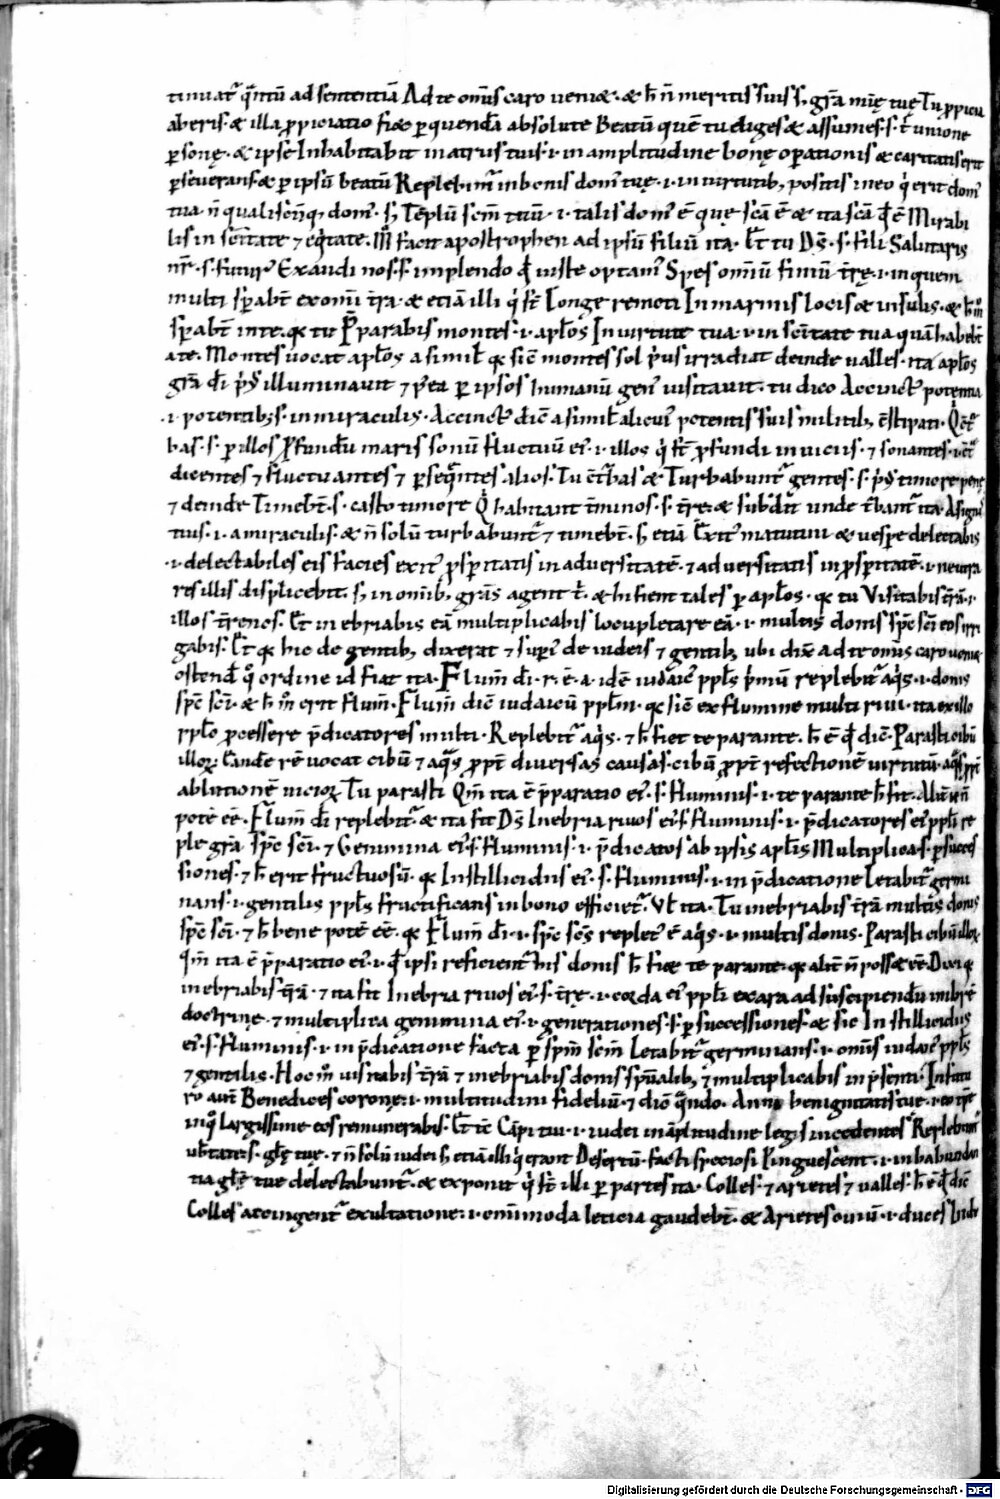 tinuat᷑ q̄ntū ad sententiā Ad te om̄is caro veniet. et h̄ n̄ meritis suis s. gr̄a mīę tuę Tu ppicia
aberis et illa ppiciatio fiet p quendā absolute Beatū quē tu eliges et assumes. s. ī unione
psonę. et ipse Inhabitabit in atriis tuis. i. in amplitudine bonę opationis et caritatis erit
pseverans et p ipsū beatū Replebim᷑ in bonis dom᷑ tuę. i. in virtutib; positis in eo q̇ erit dom᷑
tua. n̄ qualiscūq; dom᷑. s; Tēplū scm̄ tuū. i. talis dom᷑ ē quę scā ē et ita scā qd̄ ē Mirabi
lis in scītate ⁊ eq̇tate. M̊ facit apostrophen ad ipsū filiū ita. Et tu Ds̄. s. fili Salutaris
nr̄. s. futur᷑ Exaudi nos. s. implendo qd̄ iuste optam᷑ Spes omniū finiū t̄rę. i. in quem
multi spabt̄ ex omī t̄ra. et etiā illi q̇ st̄ Longe remoti In marinis locis et insulis. et h̄ m̊
spabt̄ in te. qa tu P̄parabis montes. i. aplōs In virtute tua. i. in scītate tua quā habebt̄
a te. Montes vocat aplōs a simil̄ qa sic̄ montes sol ṗus irradiat deinde valles. ita aplōs
gr̄a dī ṗus illuminavit ⁊ p̄ea p ipsos humanū gen᷑ visitavit. tu dico Accinct᷑ potentia
.i. potentib; s. in miraculis. Accinct᷑ dic̄ a simil̄ alicui᷑ potentis suis militib; c̄stipati. Q̇ ct᷑
bas. s. p illos Pfundū maris sonū fluctuū ei᷑. i. illos q̇ st̄ pfundi in viciis. ⁊ sonantes. i. c̄t᷑
dicentes ⁊ fluctuantes ⁊ pseq̄ntes alios. Tu c̄t᷑bas et Turbabunt᷑ gentes. s. ṗus timore penę
⁊ deinde Timebt̄. s. casto timore Q̇ habitant t̄minos. s. t̄re. et subdit̄ unde t᷑bant᷑ ita. A sign᷑
tuis. i. a miraculis. et n̄ solū turbabunt᷑ ⁊ timebt̄. s; etiā Exit᷑ matutini et vespe delectabis
.i. delectabiles eis facies exit᷑ pspitatis in adversitatē. ⁊ adversitatis in pspitatē. i. neutra
res illis displicebit. s; in omib; gr̄as agent t̄. et hi fient tales p aplōs. qa tu Visitabis t̄rā. i.
illos t̄renos. Et inebriabis eā multiplicabis locupletare eā. i. multis donis spc̄ scī eos irri
gabis. Et qa hic de gentib; dixerat ⁊ supi᷑ de iudeis ⁊ gentilib; ubi dix̄ ad te om̄is caro veniet
ostend̄ q̊ ordine id fiat ita. Flum̄ dī. r. ē. a. idē iudaic᷑ ppl̄s ṗmū replebit᷑ aq̇s. i. donis
spc̄ scī. et h̄ m̊ erit flum̄. Flum̄ dic̄ iudaicū pplm̄. qa sic̄ ex flumine multi rivi. ita ex illo
pplo pcessere p̄dicatores multi. Replebit᷑ aq̇s. ⁊ h̄ fiet te parante. h̄ ē qd̄ dic̄. Parasti cibū
illoꝝ. Eandē rē vocat cibū ⁊ aq̄s ppt̄ diversas causas. cibū ppt̄ refectionē virtutū. aq̄s ppt̄
ablutionē vicioꝝ Tu parasti Qm̄ ita ē p̄paratio ei᷑. s. fluminis. i. te parante h̄ fit. Alit᷑ n̄
potē ee᷑. Flum̄ dī replebit᷑. et ita fit Ds̄ Inebria rivos ei᷑. s. fluminis. i. p̄dicatores ei᷑ ppli re
ple gr̄a spc̄ scī. ⁊ Genimina ei᷑. s. fluminis. i. p̄dicatos ab ipsis aplis Multiplica. s. p succes
siones. ⁊ h̄ erit fructuosū. qa In stillicidiis ei᷑. s. fluminis. i. in p̄dicatione Letabit᷑ germi
nans. i. gentilis ppl̄s fructificans in bono efficiet᷑. Vl̄ ita. Tu inebriabis t̄rā multis donis
spc̄ scī. ⁊ h̄ bene potē ee᷑. qa Flum̄ dī. i. spc̄ scs̄ replet᷑ ē aq̇s. i. multis donis. Parasti cibū illoꝝ
Qm̄ ita ē p̄paratio ei᷑. i. qd̄ ipsi reficient᷑ his donis h̄ fiet te parante. qa alit̄ n̄ posset ee᷑. Dixi qa
inebriabis t̄rā. ⁊ ita fit Inebria rivos ei᷑. s. t̄re. i. corda ei᷑ ppli exara ad suscipiendū imbrē
doctrinę. ⁊ multiplica genimina ei᷑. i. generationes. s. p successiones. et sic In stillicidiis
ei᷑. s. fluminis. i. in p̄dicatione facta p spm̄ scm̄ Letabit᷑ germinans. i. om̄is iudaic᷑ ppl̄s
⁊ gentilis. Hoc m̊ visitabis t̄rā ⁊ inebriabis donis spūalib; ⁊ multiplicabis in p̄senti. In futu
ro aut̄ Benedices coronę. i. multitudini fideliū. ⁊ dic̄ q̄ndo. Anni benignitatis tuę. i. eo tp̄r̄e
in q̊ largissime eos remunerabis. Et tc̄ Cāpi tui. i. iudei in āplitudine legis incedentes Replebunt᷑
ub̄tate. s. glę̄ tuę. ⁊ n̄ solū iudei s; etiā illi q̇ erant Desertū. facti speciosi Pinguescent. i. in habundan
tia glę̄ tuę delectabunt᷑. et exponit q̇ st̄ illi p partes ita. Colles. ⁊ arietes ⁊ valles. h̄ ē qd̄ dic̄
Colles accingent᷑ exultatione. i. omimoda leticia gaudebt̄. et Arietes oviū. i. duces